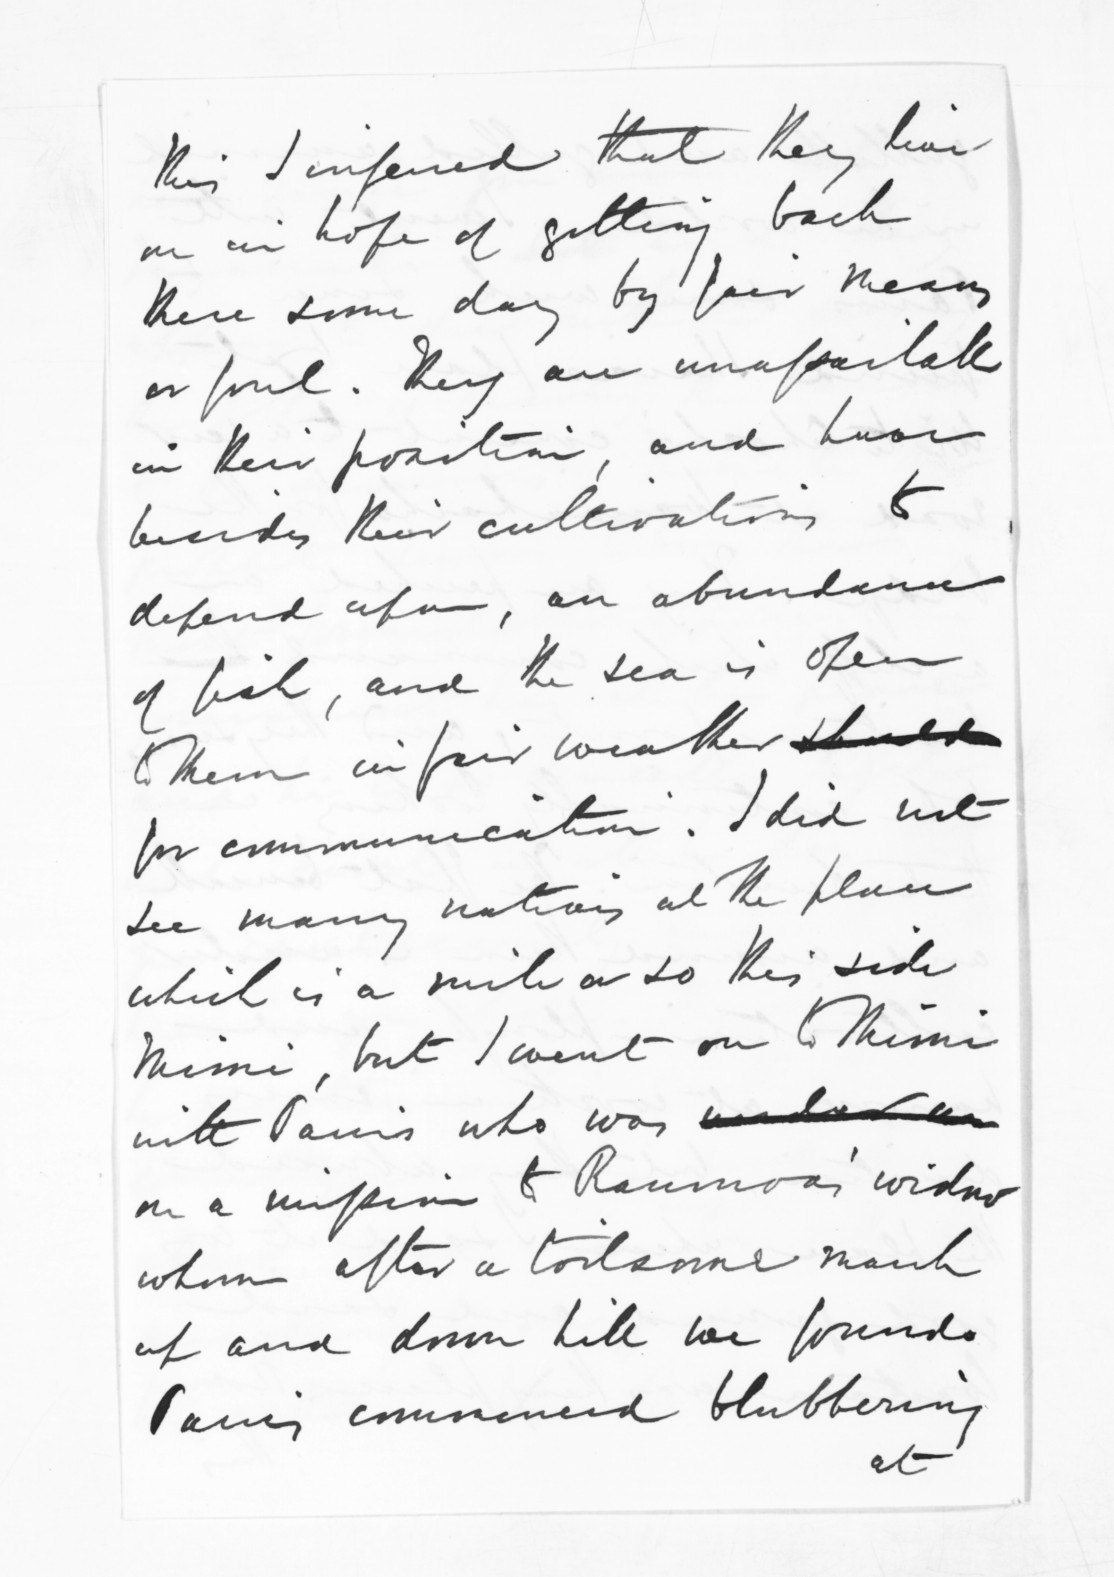 this I inferred that they live
on in hope of getting back
there some day by fair means
or foul. They are unassailable
in their position, and have
besides their cultivations to
depend upon, an abundance
of fish, and the sea is open
to them in fair weather should
for communication. I did not
see many natives at the place
which is a mile or so this side
Mimi, but I went on to Mimi
with Parris who was under an
on a mission to widow
whom after a toilsome march
up and down hill we found.
Parris commenced blubbering
at